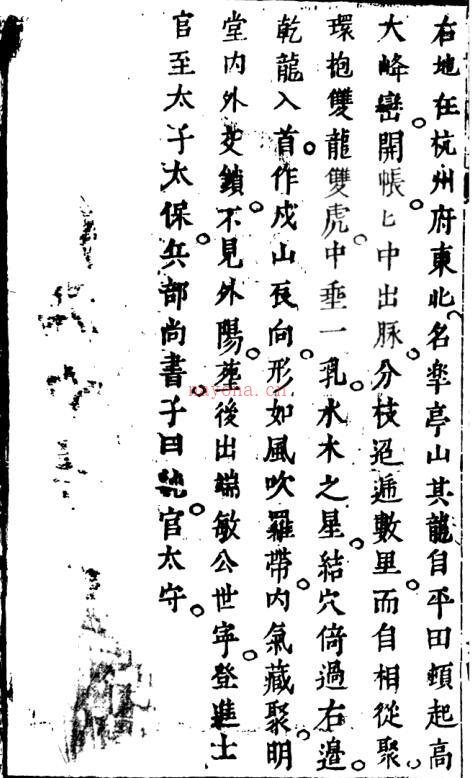 右地在杭州府東北名皐亭山其龍自平田頓起高
大峰巒開帳匕中出脉分枝迢遞數里而自相從聚
環抱雙龍雙虎中垂一乳水木之星結穴倚過右邉
乾龍入首作戍山辰向形如風吹羅帶内氣藏聚明
堂内外交鎖不見外陽葬後出端敏公世寧登進士
官至太子太保兵部尚書子曰純官太守
nayona.cn